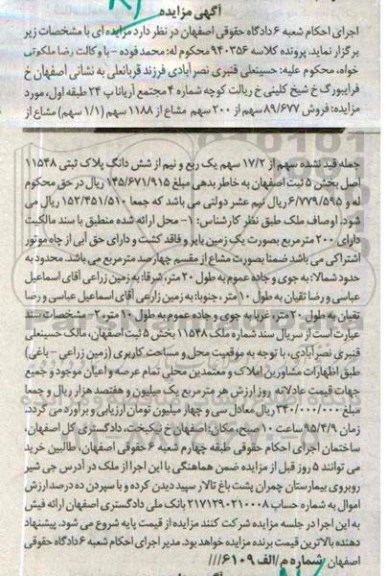 آگهی مزایده
اجرای احکام شعبه ۶ دادگاه حقوقی اصفهان در نظر دارد مزایده ای با مشخصات زیر
برگزار نماید. پرونده کلاسه ۹۴۰۳۵۶ محکوم له: محمد فوده - با وکالت رضا ملکوتی
خواه، محکوم علیه: حسینعلی قنبری نصرآبادی فرزند قربانعلی به نشانی اصفهان خ
فرایبورگ خ شیخ کلینی خ ریالت کوچه شماره ۴ مجتمع آریانا پ ۲۴ طبقه اول، مورد
مزایده: فروش ۸۹/۶۷۷ سهم از ۲۰۰ سهم مشاع از ۱۱۸۸ سهم (۱/۱ سهم) مشاع از
جمله قید نشده سهم از ۱۷/۲ سهم یک ربع و نیم از شش دانگ پلاک ثبتی ۱۱۵۴۸
اصل بخش ۵ ثبت اصفهان به خاطر بدهی مبلغ ۱۴۵/۶۷۱/۹۱۵ ریال در حق محکوم
له و ۶/۷۷۹/۵۹۵ ریال نیم عشر دولتی می باشد که جمعا ۱۵۲/۴۵۱/۵۱۰ ریال می
شود. اوصاف ملک طبق نظر کارشناس: ۱- محل ارائه شده منطبق با سند مالکیت
دارای ۲۰۰ متر مربع بصورت یک زمین بایر و فاقد کشت و دارای حق آبی از چاه موتور
اشتراکی می باشد ضمنا بصورت مشاع از مقسم چهارصد متر مربع می باشد. محدود به
حدود شمالا: به جوی و جاده عموم به طول ۲۰ متر، شرقا: به زمین زراعی آقای اسماعیل
عباسی و رضا تقیان به طول ۱۰ متر، جنوبا: به زمین زارعی آقای اسماعیل عباسی و رضا
تقیان به طول ۲۰ متر، غربا به جوی و جاده عموم به طول ۱۰ متر ۲- مشخصات سند
عبارت است از سریال سند شماره ملک ۱۱۵۴۸ بخش ۵ ثبت اصفهان، مالک حسینعلی
قنبری نصرآبادی، با توجه به موقعیت محل و مساحت کاربری (زمین زراعی - باغی)
طبق اظهارات مشاورین املاک و معتمدین محلی تمام عرصه و اعیان موجود و جمیع
جهات قیمت عادلانه روز ارزش هر متر مربع یک میلیون و هفتصد هزار ریال و جمعا
مبلغ ۳۴۰/۰۰۰/۰۰۰ ریال معادل سی و چهار میلیون تومان ارزیابی و برآورد می گردد.
زمان ۹۵/۴/۹ ساعت ۱۰ صبح، مکان: اصفهان خ نیکبخت، دادگستری کل اصفهان،
ساختمان اجرای احکام حقوقی طبقه چهارم شعبه ۶ حقوقی اصفهان، طالبین خرید
می توانند ۵ روز قبل از مزایده ضمن هماهنگی با این اجرا از ملک در آدرس جی شیر
روبروی بیمارستان چمران پشت باغ تالار سپید دیدن کرده و با سپردن ده درصد ارزش
اموال به شماره حساب ۲۱۷۱۲۹۰۲۱۰۰۰۸ بانک ملی دادگستری اصفهان ارائه فیش
به این اجرا در جلسه مزایده شرکت کنند مزایده از قیمت پایه شروع می شود. پیشنهاد
دهنده بالاترین قیمت برنده مزایده خواهد بود. مدیر اجرای احکام شعبه ۶ دادگاه حقوقی
اصفهان شماره م/الف ۶۱۰۹///